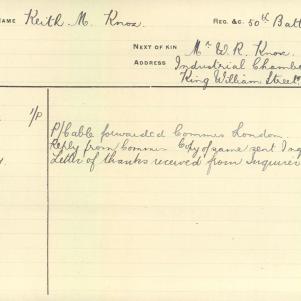 NAME Keith M. Knox. REG. &C. 50th Batt
NEXT OF KIN Mr W. R. Knox.
ADDRESS Industrial Chambe
King William Street
1/P
P/Cable forwarded Commrs London.
Reply from Commrs Copy of same sent Inq
Letter of thanks received from Inquirer